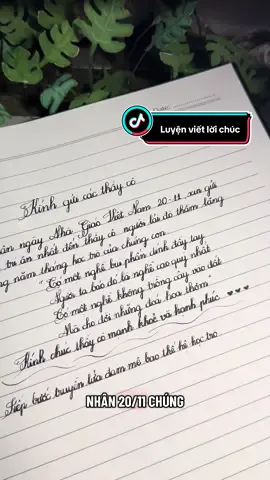 Luyện viết lời chúc
Kính gửi các thầy cô
ân ngày Nhà Giáo Việt Nam 20-11 xin gửi
tri ân nhất đến thầy cô người lái đò thầm lặng
ng năm tháng học trò của chúng con
"Có một nghề bụi phấn dính đầy tay
Người ta bảo đó là nghề cao quý nhất
Có một nghề không trồng cây vào đất
Mà cho đời những đoá hoa thơm"
Kính chúc thầy cô mạnh khoẻ và hạnh phúc ♥♥♥
Tiếp bước truyền lửa đam mê bao thế hệ học trò
NHÂN 20/11 CHÚNG